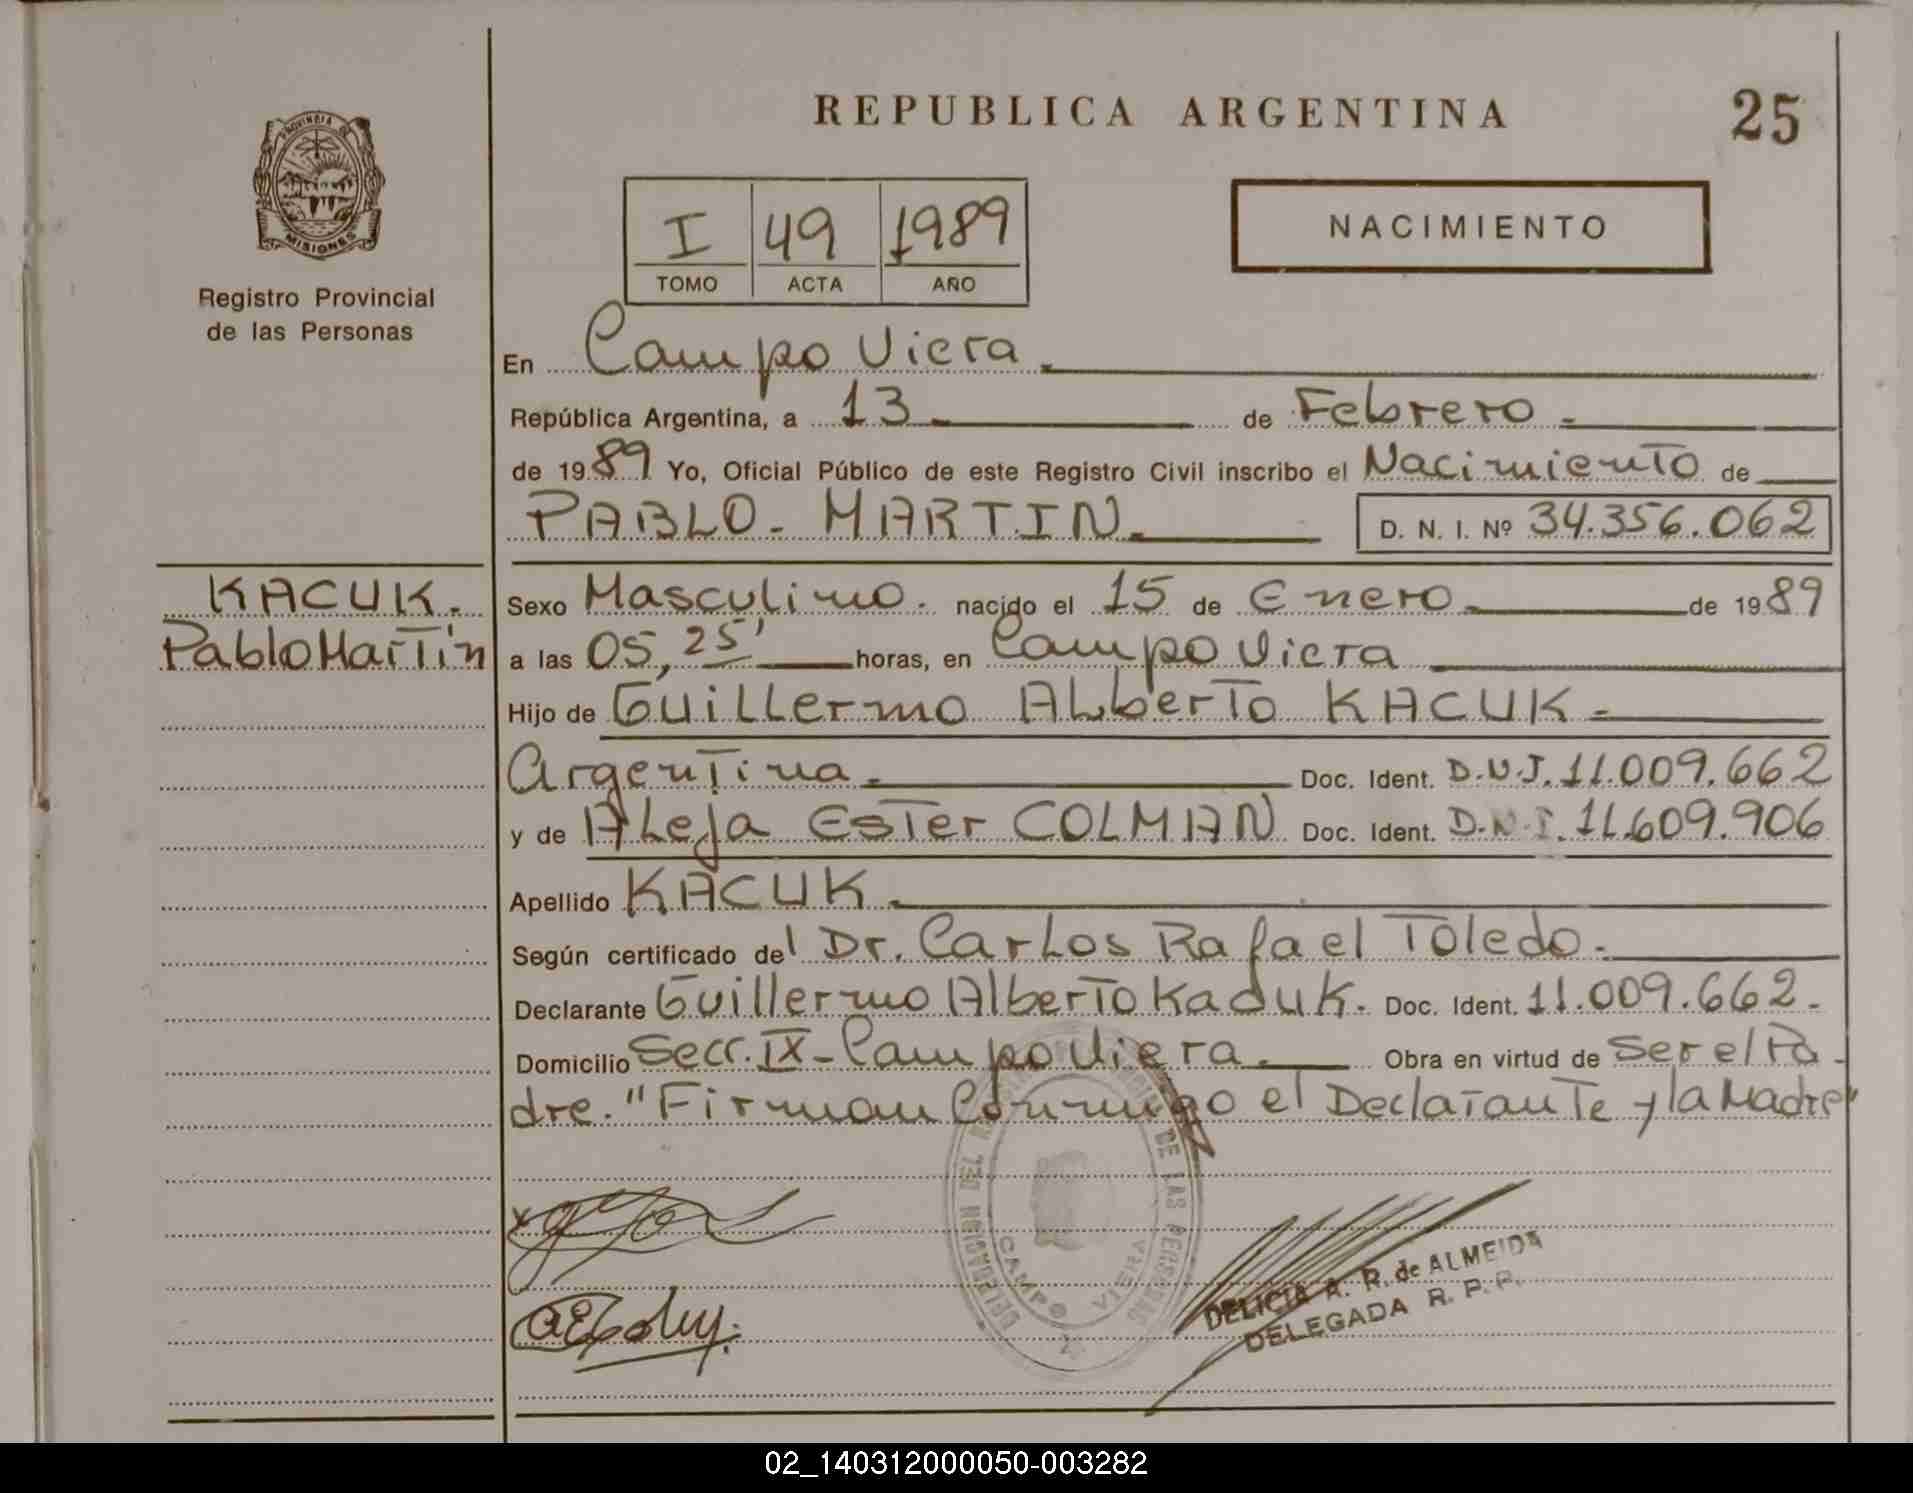 PROVINCIA DE
MISIONES
Registro Provincial
de las Personas
REPUBLICA ARGENTINA
25
I 49 1989
TOMO ACTA AÑO
NACIMIENTO
En Campo Viera
República Argentina, a 13 de Febrero
de 1989 Yo, Oficial Público de este Registro Civil inscribo el Nacimiento de
PABLO MARTIN D. N. I. Nº 34.356.062
KACUK.
Pablo Martin
Sexo Masculino nacido el 15 de Enero de 1989
a las 05,25' horas, en Campo Viera
Hijo de Guillermo Alberto KACUK
Argentina Doc. Ident. D.N.I. 11.009.662
y de Aleja Ester COLMAN Doc. Ident. D.N.I. 11.609.906
Apellido KACUK
Según certificado del Dr. Carlos Rafael Toledo
Declarante Guillermo Alberto Kacuk. Doc. Ident. 11.009.662
Domicilio Secc. IX - Campo Viera Obra en virtud de Ser el Pa
dre. "Firman Conmigo el Declarante y la Madre"
DELEGACION DEL REGISTRO PROVINCIAL DE LAS PERSONAS
CAMPO VIERA
DELICIA A. R. de ALMEIDA
DELEGADA R. P. P.
02_140312000050-003282